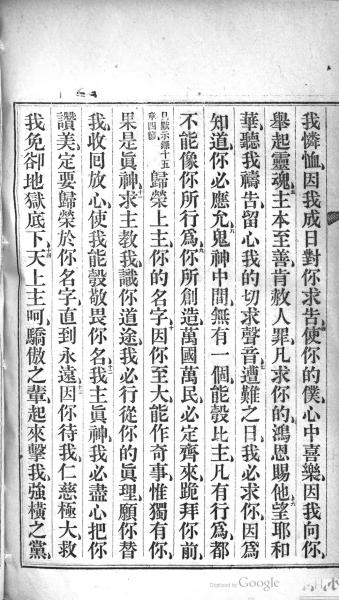 我憐恤因我成日對你求告使你的僕心中喜樂因我向你
舉起靈魂主本至善肯赦人罪凡求你的鴻恩賜他望耶和
華聽我禱告留心我的切求聲音遭難之日我必求你因爲
知道你必應允鬼神中間無有一個能彀比主凡有行爲都
不能像你所行爲你所創造萬國萬民必定齊來跪拜你前
見默示錄十五章四節歸榮上主你的名字因你至大能作奇事惟獨有你
果是眞神求主教我識你道途我必行從你的眞理願你替
我收回放心使我能彀敬畏你名我主眞神我必盡心把你
讚美定要歸榮於你名字直到永遠因你待我仁慈極大救
我免卻地獄底下天上主呵驕傲之輩起來擊我強橫之黨
Digitized by Google